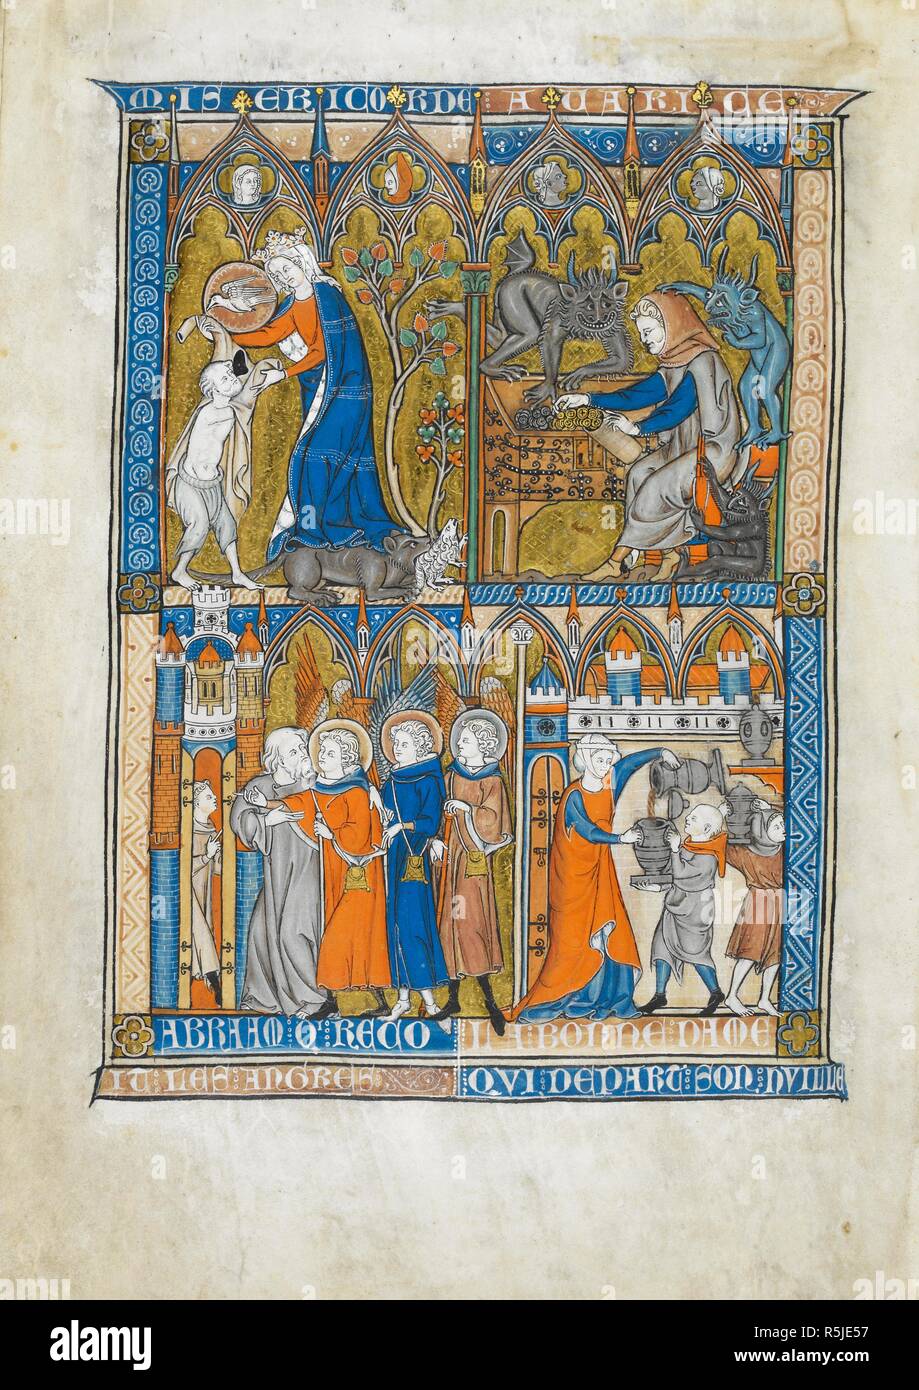 MISERICORDE AVARICE
ABRAAM Q RECO
IT LES ANGRES
LA BONNE DAME
QVI DEPART SON HVILLE
alamy
Image ID: R5JE57
www.alamy.com